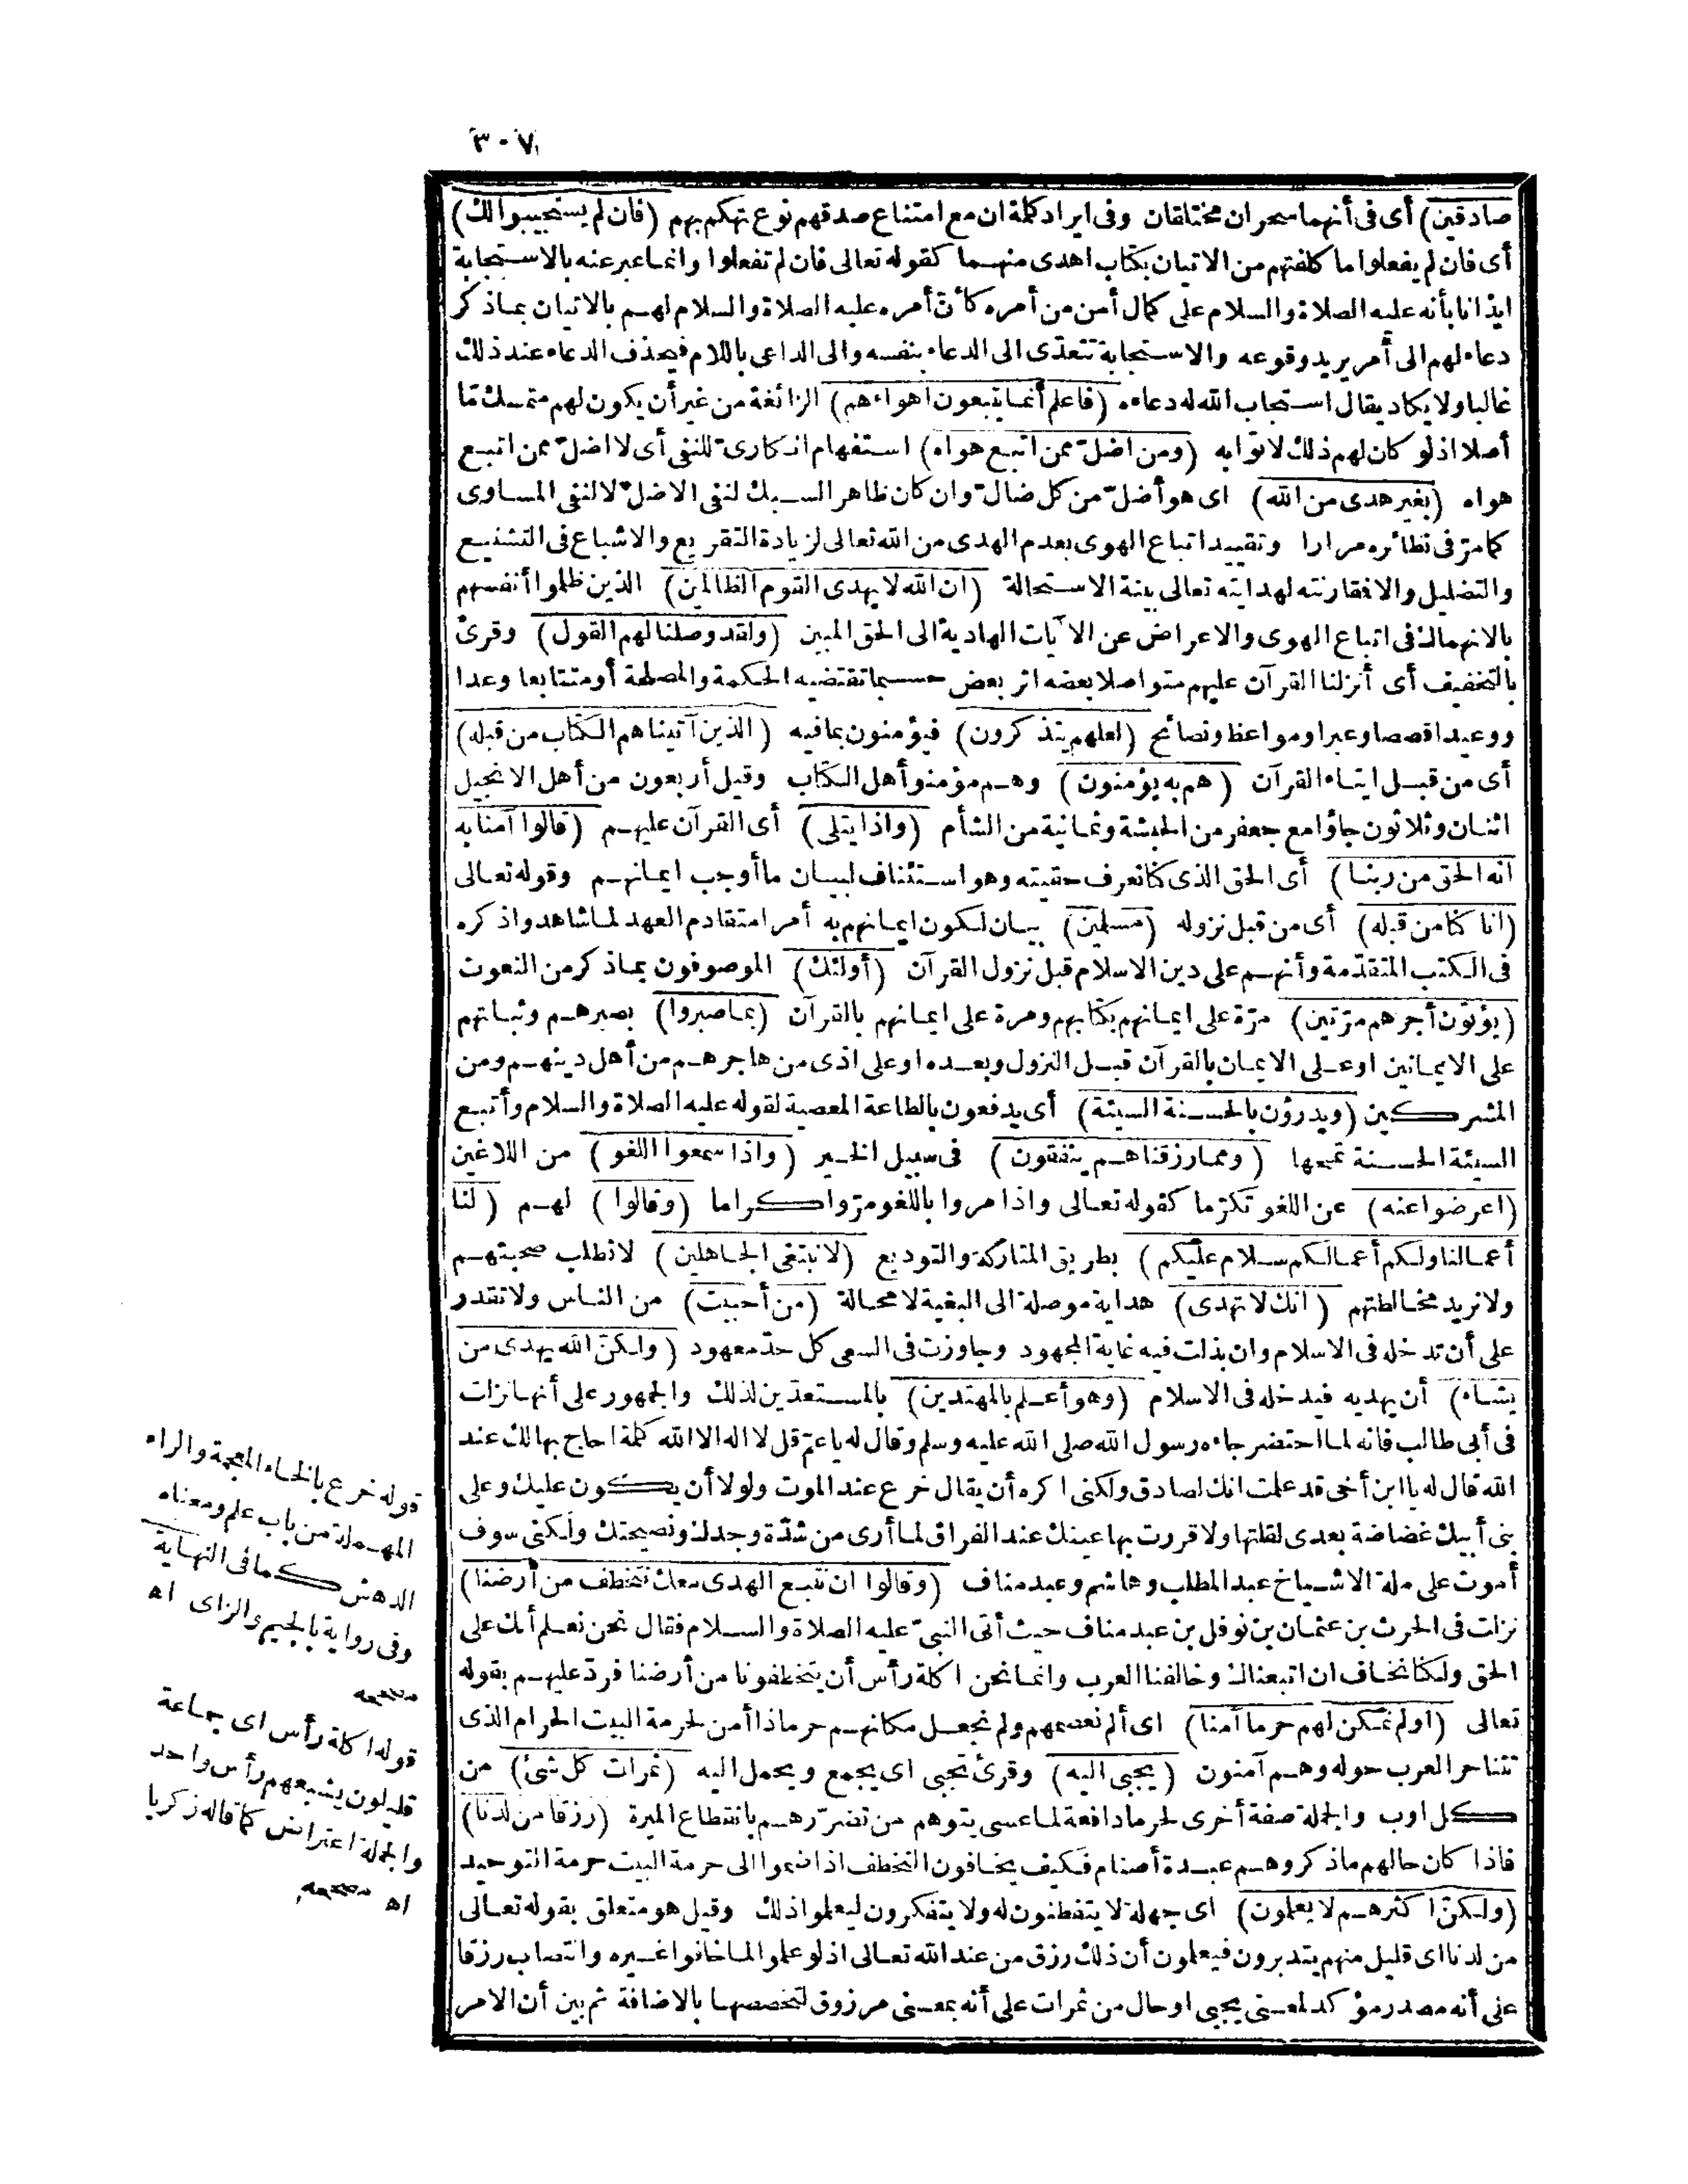 ٣٠٧
صادقين) أى فى أنهما سحران مختلقان وفى ايراد كلة ان مع امتناع صدقهم نوع تهكم بهم (فان لم يستجيبوا لك)
أى فان لم يفعلوا ما كلفتهم من الاتيان بكتاب اهدى منهما كقوله تعالى فان لم تفعلوا وانما عبر عنه بالاستجابة
ايذانا بأنه عليه الصلاة والسلام على كمال أمن من أمره كأنّ أمره عليه الصلاة والسلام لهم بالاتيان بماذ كر
دعاء لهم الى أمر يريد وقوعه والاستجابة تتعدّى الى الدعاء بنفسه والى الداعى باللام فيحذف الدعاء عند ذلك
غالبا ولا يكاد يقال استجاب الله له دعاءه (فاعلم أنما يتبعون اهواءهم) الزائغة من غير أن يكون لهم متمسك مّا
أصلا اذ لو كان لهم ذلك لاتوا به (ومن اضلّ ممن اتبع هواه) استفهام انكارىّ للنفى أى لا اضلّ ممن اتبع
هواه (بغير هدى من الله) اى هو أضلّ من كل ضالّ وان كان ظاهر السبك لنفى الاضلّ لا لنفى المساوى
كما مرّ فى نظائره مرارا وتقييد اتباع الهوى بعدم الهدى من الله تعالى لزيادة التقريع والاشباع فى التشنيع
والتضليل والا فمقارنته لهدايته تعالى بينة الاستحالة (ان الله لا يهدى القوم الظالمين) الذين ظلموا أنفسهم
بالانهماك فى اتباع الهوى والاعراض عن الآيات الهادية الى الحق المبين (ولقد وصلنا لهم القول) وقرئ
بالتخفيف أى أنزلنا القرآن عليهم متواصلا بعضه اثر بعض حسبما تقتضيه الحكمة والمصلحة أو متتابعا وعدا
ووعيدا قصصا وعبرا ومواعظ ونصائح (لعلهم يتذكرون) فيؤمنون بما فيه (الذين آتيناهم الكتاب من قبله)
أى من قبل ايتاء القرآن (هم به يؤمنون) وهم مؤمنو أهل الكتاب وقيل أربعون من أهل الانجيل
اثنان وثلاثون جاؤا مع جعفر من الحبشة وثمانية من الشأم (واذا يتلى) أى القرآن عليهم (قالوا آمنا به
انه الحق من ربنا) أى الحق الذى كنا نعرف حقيته وهو استئناف لبيان ما أوجب ايمانهم وقوله تعالى
(انا كنا من قبله) أى من قبل نزوله (مسلمين) بيان لكون ايمانهم به أمرا متقادم العهد لما شاهدوا ذكره
فى الكتب المتقدّمة وأنهم على دين الاسلام قبل نزول القرآن (أولئك) الموصوفون بماذ كر من النعوت
(يؤتون أجرهم مرّتين) مرّة على ايمانهم بكتابهم ومرة على ايمانهم بالقرآن (بما صبروا) بصبرهم وثباتهم
على الايمانين اوعلى الايمان بالقرآن قبل النزول وبعده او على اذى من هاجرهم من أهل دينهم ومن
المشركين (ويدرؤن بالحسنة السيئة) أى يدفعون بالطاعة المعصية لقوله عليه الصلاة والسلام وأتبع
السيئة الحسنة تمحها (ومما رزقناهم ينفقون) فى سبيل الخير (واذا سمعوا اللغو) من اللاغين
(اعرضوا عنه) عن اللغو تكرّما كقوله تعالى واذا مروا باللغو مرّوا كراما (وقالوا) لهم (لنا
أعمالنا ولكم أعمالكم سلام عليكم) بطريق المتاركة والتوديع (لا نبتغى الجاهلين) لا نطلب صحبتهم
ولا نريد مخالطتهم (انك لا تهدى) هداية موصلة الى البغية لا محالة (من أحببت) من الناس ولا تقدر
على أن تدخله فى الاسلام وان بذلت فيه غاية المجهود وجاوزت فى السعى كل حدّ معهود (ولكنّ الله يهدى من
يشاء) أن يهديه فيدخله فى الاسلام (وهو أعلم بالمهتدين) بالمستعدّين لذلك والجمهور على أنها نزلت
فى أبى طالب فانه لما احتضر جاءه رسول الله صلى الله عليه وسلم وقال له يا عمّ قل لا اله الا الله كلة احاج بها لك عند
الله قال له يا ابن أخى قد علمت انك لصادق ولكنى اكره أن يقال خرع عند الموت ولولا أن يكون عليك وعلى
بنى أبيك غضاضة بعدى لقلتها ولا قررت بها عينك عند الفراق لما أرى من شدّة وجدك ونصيحتك ولكنى سوف
أموت على ملة الاشياخ عبد المطلب وهاشم وعبد مناف (وقالوا ان نتبع الهدى معك نتخطف من أرضنا)
نزلت فى الحرث بن عثمان بن نوفل بن عبد مناف حيث أتى النبىّ عليه الصلاة والسلام فقال نحن نعلم أنك على
الحق ولكنا نخاف ان اتبعناك وخالفنا العرب وانما نحن اكلة رأس أن يتخطفونا من أرضنا فردّ عليهم بقوله
تعالى (اولم نمكن لهم حرما آمنا) اى ألم نعصمهم ولم نجعل مكانهم حرما ذا أمن لحرمة البيت الحرام الذى
تتناحر العرب حوله وهم آمنون (يجبى اليه) وقرئ تجبى اى يجمع ويحمل اليه (ثمرات كل شئ) من
كل اوب والجلة صفة أخرى لحرما دافعة لما عسى يتوهم من تضرّرهم بانقطاع الميرة (رزقا من لدنا)
فاذا كان حالهم ماذ كر وهم عبدة أصنام فكيف يخافون التخطف اذا ضموا الى حرمة البيت حرمة التوحيد
(ولكنّ اكثرهم لا يعلمون) اى جهلة لا يتفطنون له ولا يتفكرون ليعلموا ذلك وقيل هو متعلق بقوله تعالى
من لدنا اى قليل منهم يتدبرون فيعلمون أن ذلك رزق من عند الله تعالى اذ لو علموا لما خافوا غيره وانتصاب رزقا
على أنه مصدر مؤكد لمعنى يجبى او حال من ثمرات على أنه بمعنى مرزوق لتخصصها بالاضافة ثم بين أن الامر
قوله خرع بالخاء المعجمة والراء
المهملة من باب علم ومعناه
الدهش كما فى النهاية
وفى رواية بالجيم والزاى اه
مصححه
قوله اكلة رأس اى جماعة
قليلون يشبعهم رأس واحد
والجملة اعتراض كما قاله زكريا
اه مصححه